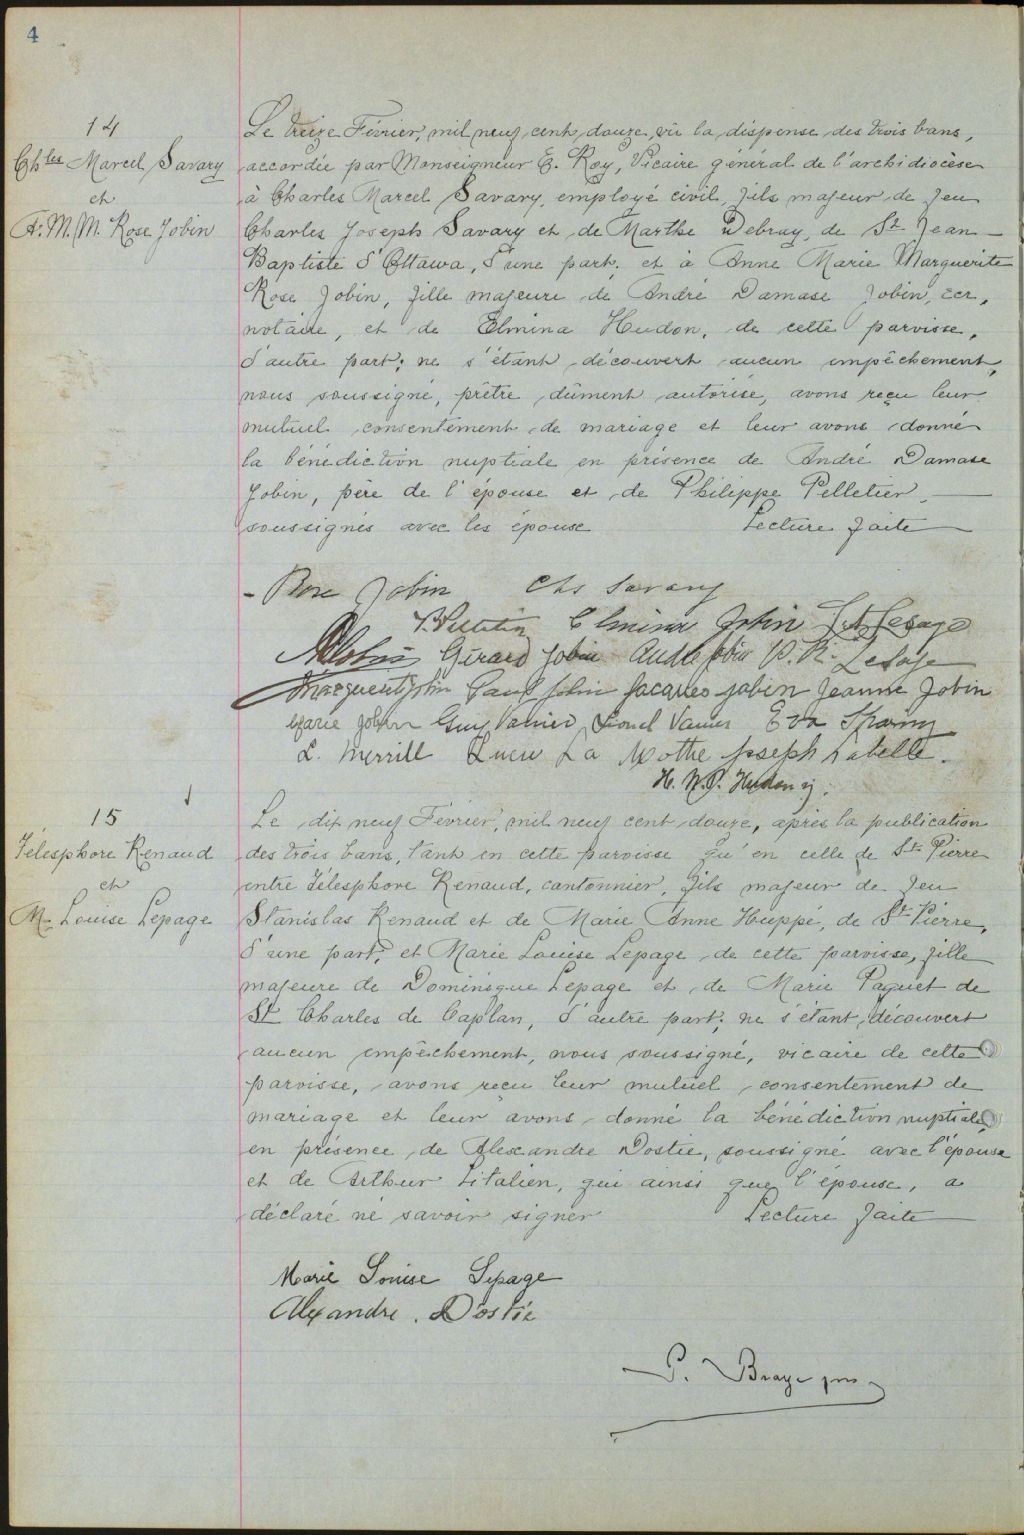 4
14
Chles Marcel Savary
et
A. M. M. Rose Jobin
Le treize Février, mil neuf cent douze, vu la dispense des trois bans,
accordée par Monseigneur E. Roy, Vicaire général de l'archidiocèse
à Charles Marcel Savary, employé civil, fils majeur de feu
Charles Joseph Savary et de Marthe Debray, de St Jean-
Baptiste d'Ottawa, d'une part, et à Anne Marie Marguerite
Rose Jobin, fille majeure de André Damase Jobin, ecr,
notaire, et de Elmina Hudon, de cette paroisse,
d'autre part; ne s'étant découvert aucun empêchement,
nous soussigné, prêtre dûment autorisé, avons reçu leur
mutuel consentement de mariage et leur avons donné
la bénédiction nuptiale en présence de André Damase
Jobin, père de l'épouse et de Philippe Pelletier
soussignés avec les épouse Lecture faite
Rose Jobin Chs Savary
Elmina Jobin Lesage
Gérard Jobin André Jobin Lesage
Marguerite Jobin Paul Jobin Jacques Jobin Jeanne Jobin
Marie Jobin Guy Vanier Lionel Vanier Eva
L. Merrill La Mothe Joseph Labelle.
H. N. P. Hudon
15
Télesphore Renaud
et
M. Louise Lepage
Le dix neuf Février, mil neuf cent douze, après la publication
des trois bans, tant en cette paroisse qu'en celle de St Pierre
entre Télesphore Renaud, cantonnier, fils majeur de feu
Stanislas Renaud et de Marie Anne Huppé, de St Pierre,
d'une part; et Marie Louise Lepage de cette paroisse, fille
majeure de Dominique Lepage et de Marie Paquet de
St Charles de Caplan, d'autre part; ne s'étant découvert
aucun empêchement, nous soussigné, vicaire de cette
paroisse, avons reçu leur mutuel consentement de
mariage et leur avons donné la bénédiction nuptiale
en présence de Alexandre Dostie, soussigné avec l'épouse
et de Arthur Litalien, qui ainsi que l'épouse, a
déclaré ne savoir signer Lecture faite
Marie Louise Lepage
Alexandre. Dostie
P.